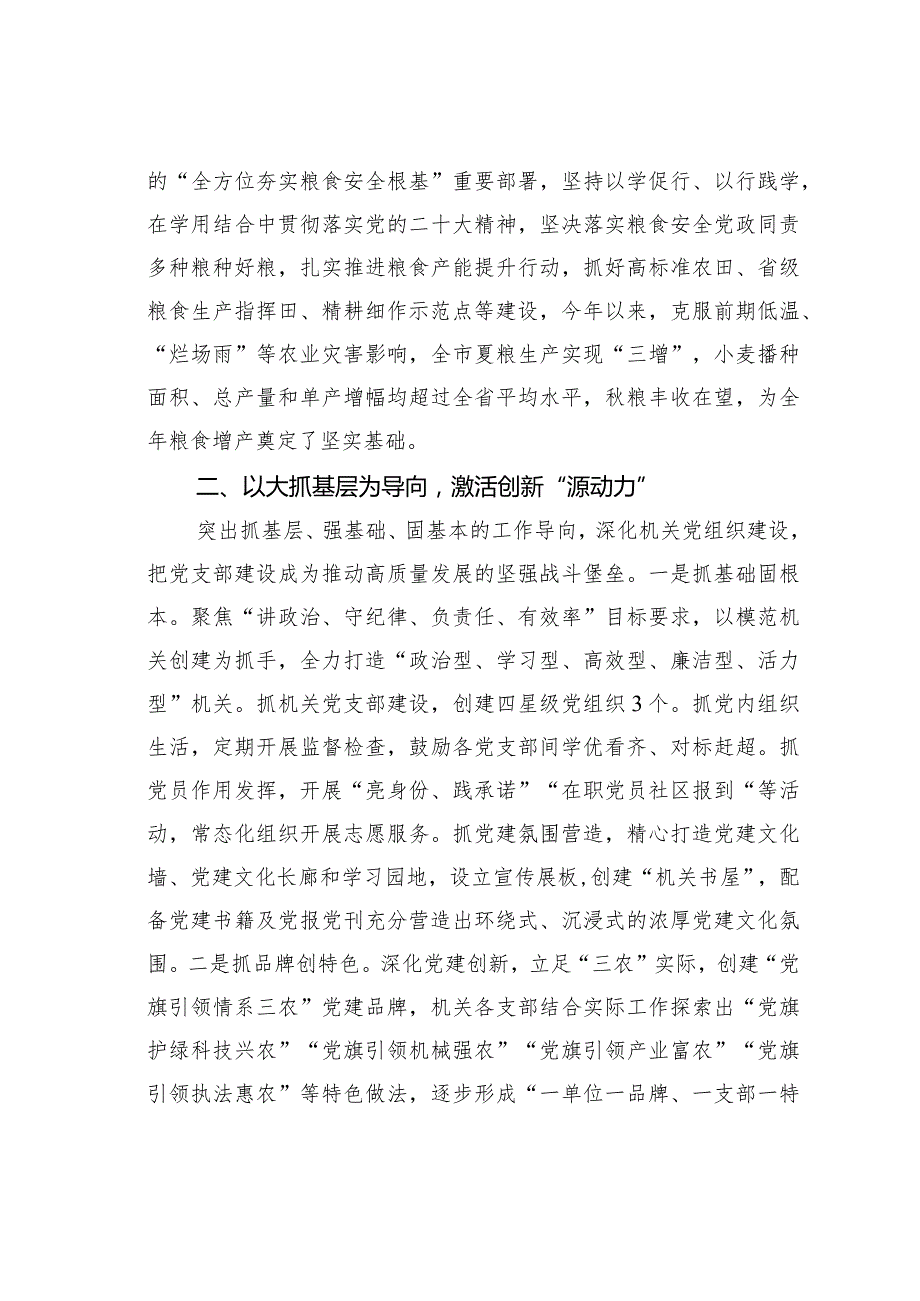 的“全方位夯实粮食安全根基”重要部署，坚持以学促行、以行践学，
在学用结合中贯彻落实党的二十大精神，坚决落实粮食安全党政同责
多种粮种好粮，扎实推进粮食产能提升行动，抓好高标准农田、省级
粮食生产指挥田、精耕细作示范点等建设，今年以来，克服前期低温、
“烂场雨”等农业灾害影响，全市夏粮生产实现“三增”，小麦播种
面积、总产量和单产增幅均超过全省平均水平，秋粮丰收在望，为全
年粮食增产奠定了坚实基础。
二、以大抓基层为导向，激活创新“源动力”
突出抓基层、强基础、固基本的工作导向，深化机关党组织建设，
把党支部建设成为推动高质量发展的坚强战斗堡垒。一是抓基础固根
本。聚焦“讲政治、守纪律、负责任、有效率”目标要求，以模范机
关创建为抓手，全力打造“政治型、学习型、高效型、廉洁型、活力
型”机关。抓机关党支部建设，创建四星级党组织3个。抓党内组织
生活，定期开展监督检查，鼓励各党支部间学优看齐、对标赶超。抓
党员作用发挥，开展“亮身份、践承诺”“在职党员社区报到“等活
动，常态化组织开展志愿服务。抓党建氛围营造，精心打造党建文化
墙、党建文化长廊和学习园地，设立宣传展板,创建“机关书屋”，配
备党建书籍及党报党刊充分营造出环绕式、沉浸式的浓厚党建文化氛
围。二是抓品牌创特色。深化党建创新，立足“三农”实际，创建“党
旗引领情系三农”党建品牌，机关各支部结合实际工作探索出“党旗
护绿科技兴农”“党旗引领机械强农”“党旗引领产业富农”“党旗
引领执法惠农”等特色做法，逐步形成“一单位一品牌、一支部一特